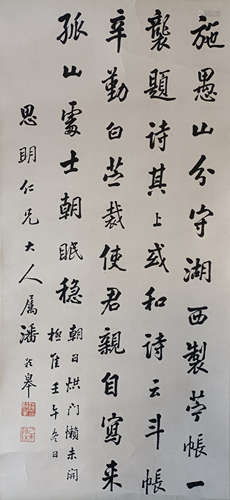 施愚山分守湖西製苧帳一
襲題詩其上或和詩云斗帳
辛勤白苧裁使君親自寫來
孤山處士朝眠穩
朝日烘門懶未開
壬午冬日
思明仁兄大人属潘龄皋